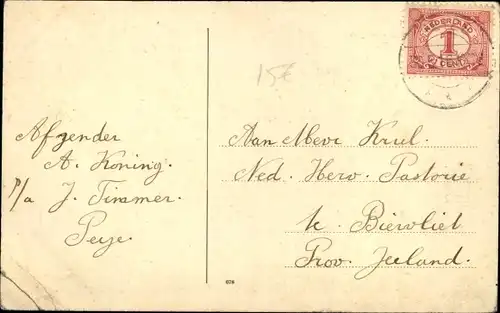 NEDERLAND
1
CENT
15€
Afzender
A. Koning.
p/a J. Timmer.
Aan Mevr Krul.
Ned. Herv. Pastorie
te Biervliet
Prov. Zeeland.
678